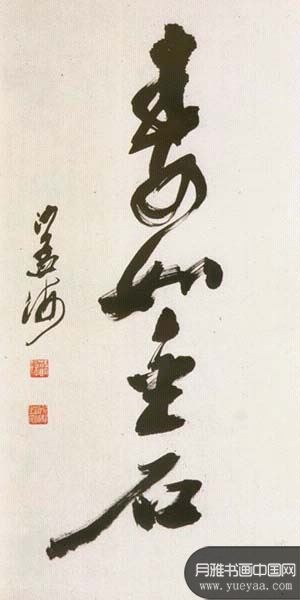 壽如金石
沙孟海
月雅书画中国网
www.yueyaa.com